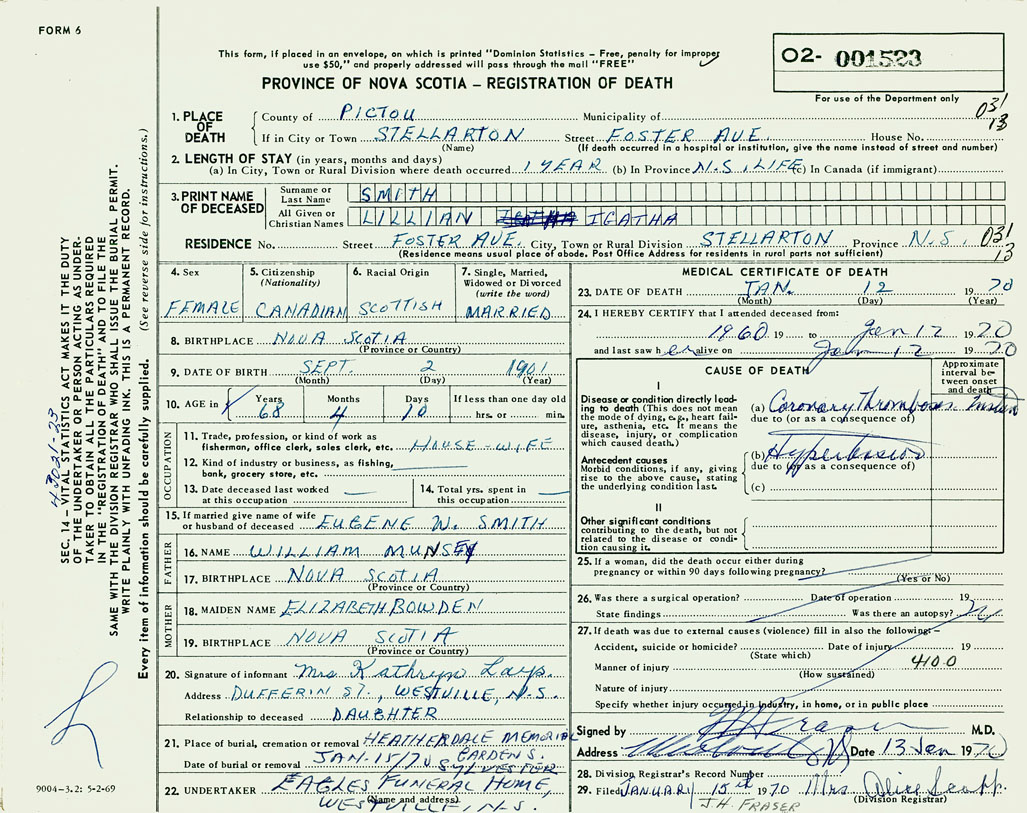 FORM 6
This form, if placed in an envelope, on which is printed "Dominion Statistics – Free, penalty for improper
use $50," and properly addressed will pass through the mail "FREE"
PROVINCE OF NOVA SCOTIA – REGISTRATION OF DEATH
O2- 001523
For use of the Department only
031
13
1. PLACE OF DEATH County of PICTOU Municipality of
If in City or Town STELLARTON Street FOSTER AVE. House No.
(Name) (If death occurred in a hospital or institution, give the name instead of street and number)
2. LENGTH OF STAY (in years, months and days)
(a) In City, Town or Rural Division where death occurred 1 YEAR (b) In Province N.S. LIFE (c) In Canada (if immigrant)
3. PRINT NAME OF DECEASED
Surname or Last Name SMITH
All Given or Christian Names LILLIAN IGATHA IGATHA
RESIDENCE No. Street FOSTER AVE. City, Town or Rural Division STELLARTON Province N.S. 031
(Residence means usual place of abode. Post Office Address for residents in rural parts not sufficient) 13
4. Sex 5. Citizenship (Nationality) 6. Racial Origin 7. Single, Married, Widowed or Divorced (write the word)
FEMALE CANADIAN SCOTTISH MARRIED
8. BIRTHPLACE NOVA SCOTIA
(Province or Country)
9. DATE OF BIRTH SEPT. 2 1901
(Month) (Day) (Year)
10. AGE in Years Months Days If less than one day old
68 4 10 hrs. or min.
OCCUPATION
11. Trade, profession, or kind of work as
fisherman, office clerk, sales clerk, etc. HOUSE-WIFE
12. Kind of industry or business, as fishing,
bank, grocery store, etc.
13. Date deceased last worked at this occupation
14. Total yrs. spent in this occupation
15. If married give name of wife
or husband of deceased EUGENE W. SMITH
FATHER
16. NAME WILLIAM MUNSEY
17. BIRTHPLACE NOVA SCOTIA
(Province or Country)
MOTHER
18. MAIDEN NAME ELIZABETH BOWDEN
19. BIRTHPLACE NOVA SCOTIA
(Province or Country)
20. Signature of informant Mrs Kathryn Lays
Address DUFFERIN ST., WESTVILLE, N.S.
Relationship to deceased DAUGHTER
21. Place of burial, cremation or removal HEATHERDALE MEMORIAL
GARDENS.
Date of burial or removal JAN-15/70 SYLVESTER
22. UNDERTAKER EAGLES FUNERAL HOME,
(Name and address)
WESTVILLE, N.S.
MEDICAL CERTIFICATE OF DEATH
23. DATE OF DEATH JAN. 12 1970
(Month) (Day) (Year)
24. I HEREBY CERTIFY that I attended deceased from:
1960 19 to Jan 12 1970
and last saw her alive on Jan 12 1970
CAUSE OF DEATH
Approximate interval between onset and death
I
Disease or condition directly leading to death (This does not mean the mode of dying, e.g., heart failure, asthenia, etc. It means the disease, injury, or complication which caused death.)
(a) Coronary thrombosis Instant
due to (or as a consequence of)
Antecedent causes
Morbid conditions, if any, giving rise to the above cause, stating the underlying condition last.
(b) Hypertension
due to (or as a consequence of)
(c)
II
Other significant conditions
contributing to the death, but not related to the disease or condition causing it.
25. If a woman, did the death occur either during
pregnancy or within 90 days following pregnancy?
(Yes or No)
26. Was there a surgical operation? Date of operation 19
State findings Was there an autopsy? N
27. If death was due to external causes (violence) fill in also the following:–
Accident, suicide or homicide? Date of injury 19
(State which)
4100
Manner of injury
(How sustained)
Nature of injury
Specify whether injury occurred in industry, in home, or in public place
Signed by M.D.
Address Date 13 Jan 1970
28. Division Registrar's Record Number
29. Filed JANUARY 15th 1970 Mrs. Alice
(Division Registrar)
J.H. FRASER
SEC. 14 – VITAL STATISTICS ACT MAKES IT THE DUTY
OF THE UNDERTAKER OR PERSON ACTING AS UNDER-
TAKER TO OBTAIN ALL THE PARTICULARS REQUIRED
IN THE "REGISTRATION OF DEATH" AND TO FILE THE
SAME WITH THE DIVISION REGISTRAR WHO SHALL ISSUE THE BURIAL PERMIT.
WRITE PLAINLY WITH UNFADING INK. THIS IS A PERMANENT RECORD.
Every item of information should be carefully supplied. (See reverse side for instructions.)
9004–3.2: 5-2-69